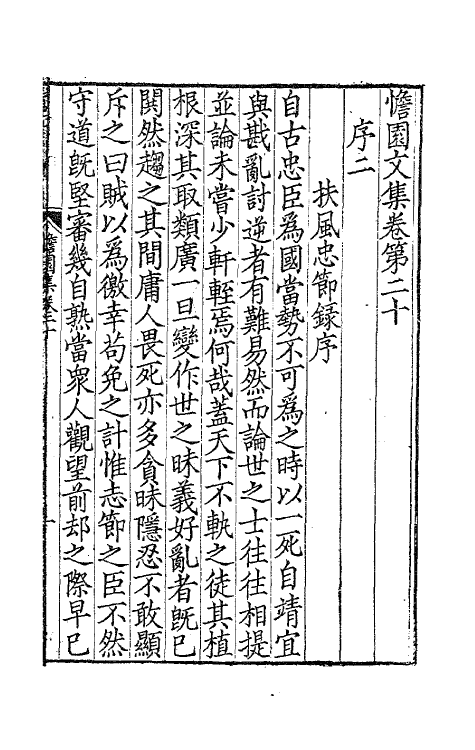 憺園文集卷第二十
序二
扶風忠節錄序
自古忠臣為國當勢不可為之時以一死自靖宜
與戡亂討逆者有難易然而論世之士往往相提
並論未嘗少軒輊焉何哉蓋天下不軌之徒其植
根深其取類廣一旦變作世之昧義好亂者既已
鬨然趨之其間庸人畏死亦多貪昧隱忍不敢顯
斥之曰賊以為徼幸苟免之計惟志節之臣不然
守道既堅審幾自熟當衆人觀望前却之際早已
憺園集卷二十
一